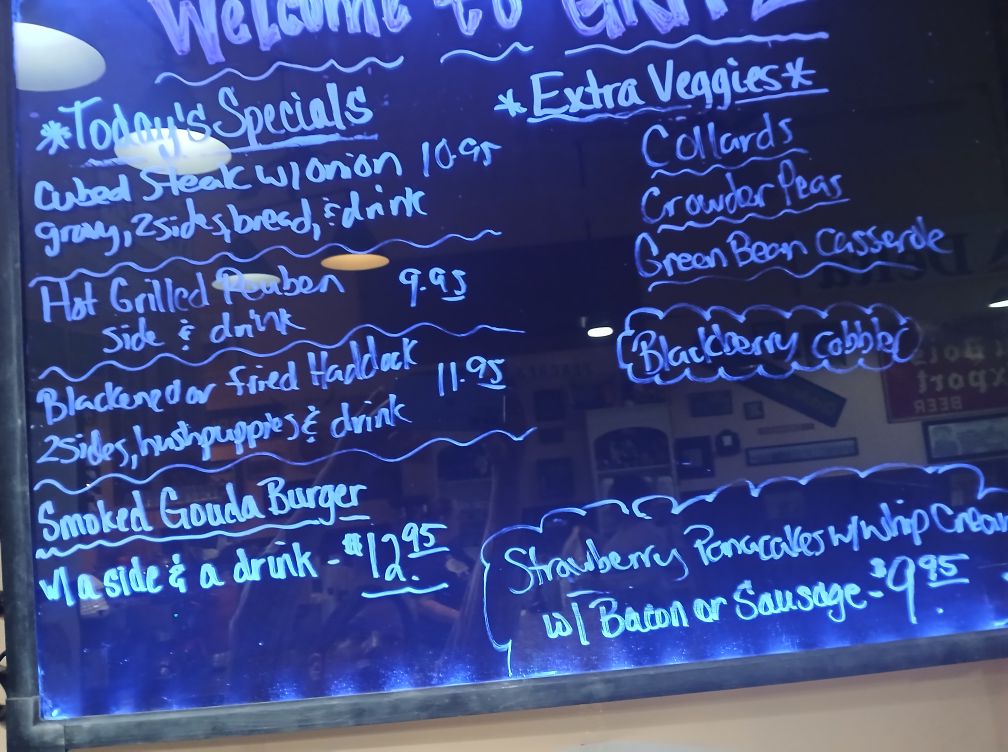 Welcome to GRITZ
*Today's Specials
Cubed Steak w/onion 10.95
gravy, 2sides, bread, & drink
Hot Grilled Reuben 9.95
side & drink
Blackened or fried Haddock 11.95
2sides, hushpuppies & drink
Smoked Gouda Burger
w/ a side & a drink - $12.95
*Extra Veggies*
Collards
Crowder Peas
Green Bean Casserole
Blackberry cobbler
Strawberry Pancakes w/ Whip Cream
w/ Bacon or Sausage - $9.95
Delta
Export
BEER